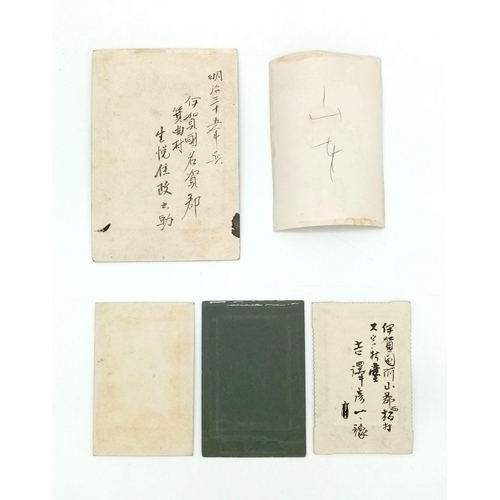 明治三十五年兵
伊賀國名賀郡
箕曲村
生悦住政之助
山女
伊賀国阿山郡西柘村
大字新堂
吉澤彦一様